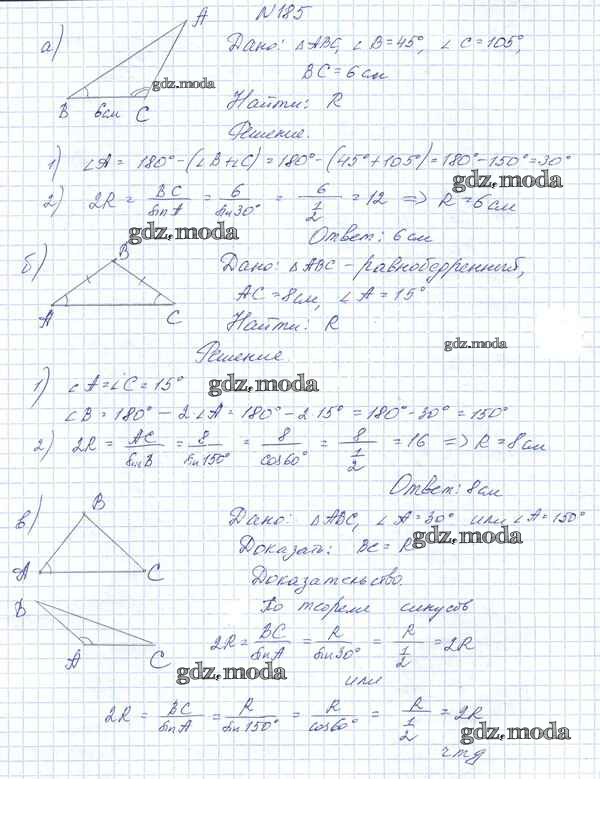 N 185
а)
A
B
6см
C
Дано: △ABC, ∠B=45°, ∠C=105°,
BC=6см
Найти: R
Решение.
1) ∠A= 180°-(∠B+∠C)=180°-(45°+105°)=180°-150°=30°
2) 2R = BC/sinA = 6/sin30° = 6/(1/2) = 12 => R=6см
Ответ: 6см
б)
B
A
C
Дано: △ABC - равнобедренный,
AC=8см, ∠A=15°
Найти: R
Решение
1) ∠A=∠C=15°
∠B=180°-2∠A=180°-2·15°=180°-30°=150°
2) 2R = AC/sinB = 8/sin150° = 8/cos60° = 8/(1/2) = 16 => R=8см
Ответ: 8см
в)
B
A
C
Дано: △ABC, ∠A=30° или ∠A=150°
Доказать: BC=R
Доказательство.
B
A
C
По теореме синусов
2R = BC/sinA = R/sin30° = R/(1/2) = 2R
или
2R = BC/sinA = R/sin150° = R/cos60° = R/(1/2) = 2R
чтд
gdz.moda
gdz.moda
gdz.moda
gdz.moda
gdz.moda
gdz.moda
gdz.moda
gdz.moda